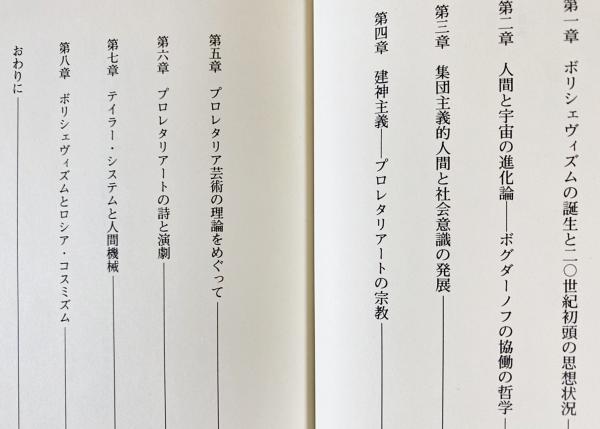 第一章　ボリシェヴィズムの誕生と二〇世紀初頭の思想状況
第二章　人間と宇宙の進化論――ボグダーノフの協働の哲学
第三章　集団主義的人間と社会意識の発展
第四章　建神主義――プロレタリアートの宗教
第五章　プロレタリア芸術の理論をめぐって
第六章　プロレタリアートの詩と演劇
第七章　テイラー・システムと人間機械
第八章　ボリシェヴィズムとロシア・コスミズム
おわりに